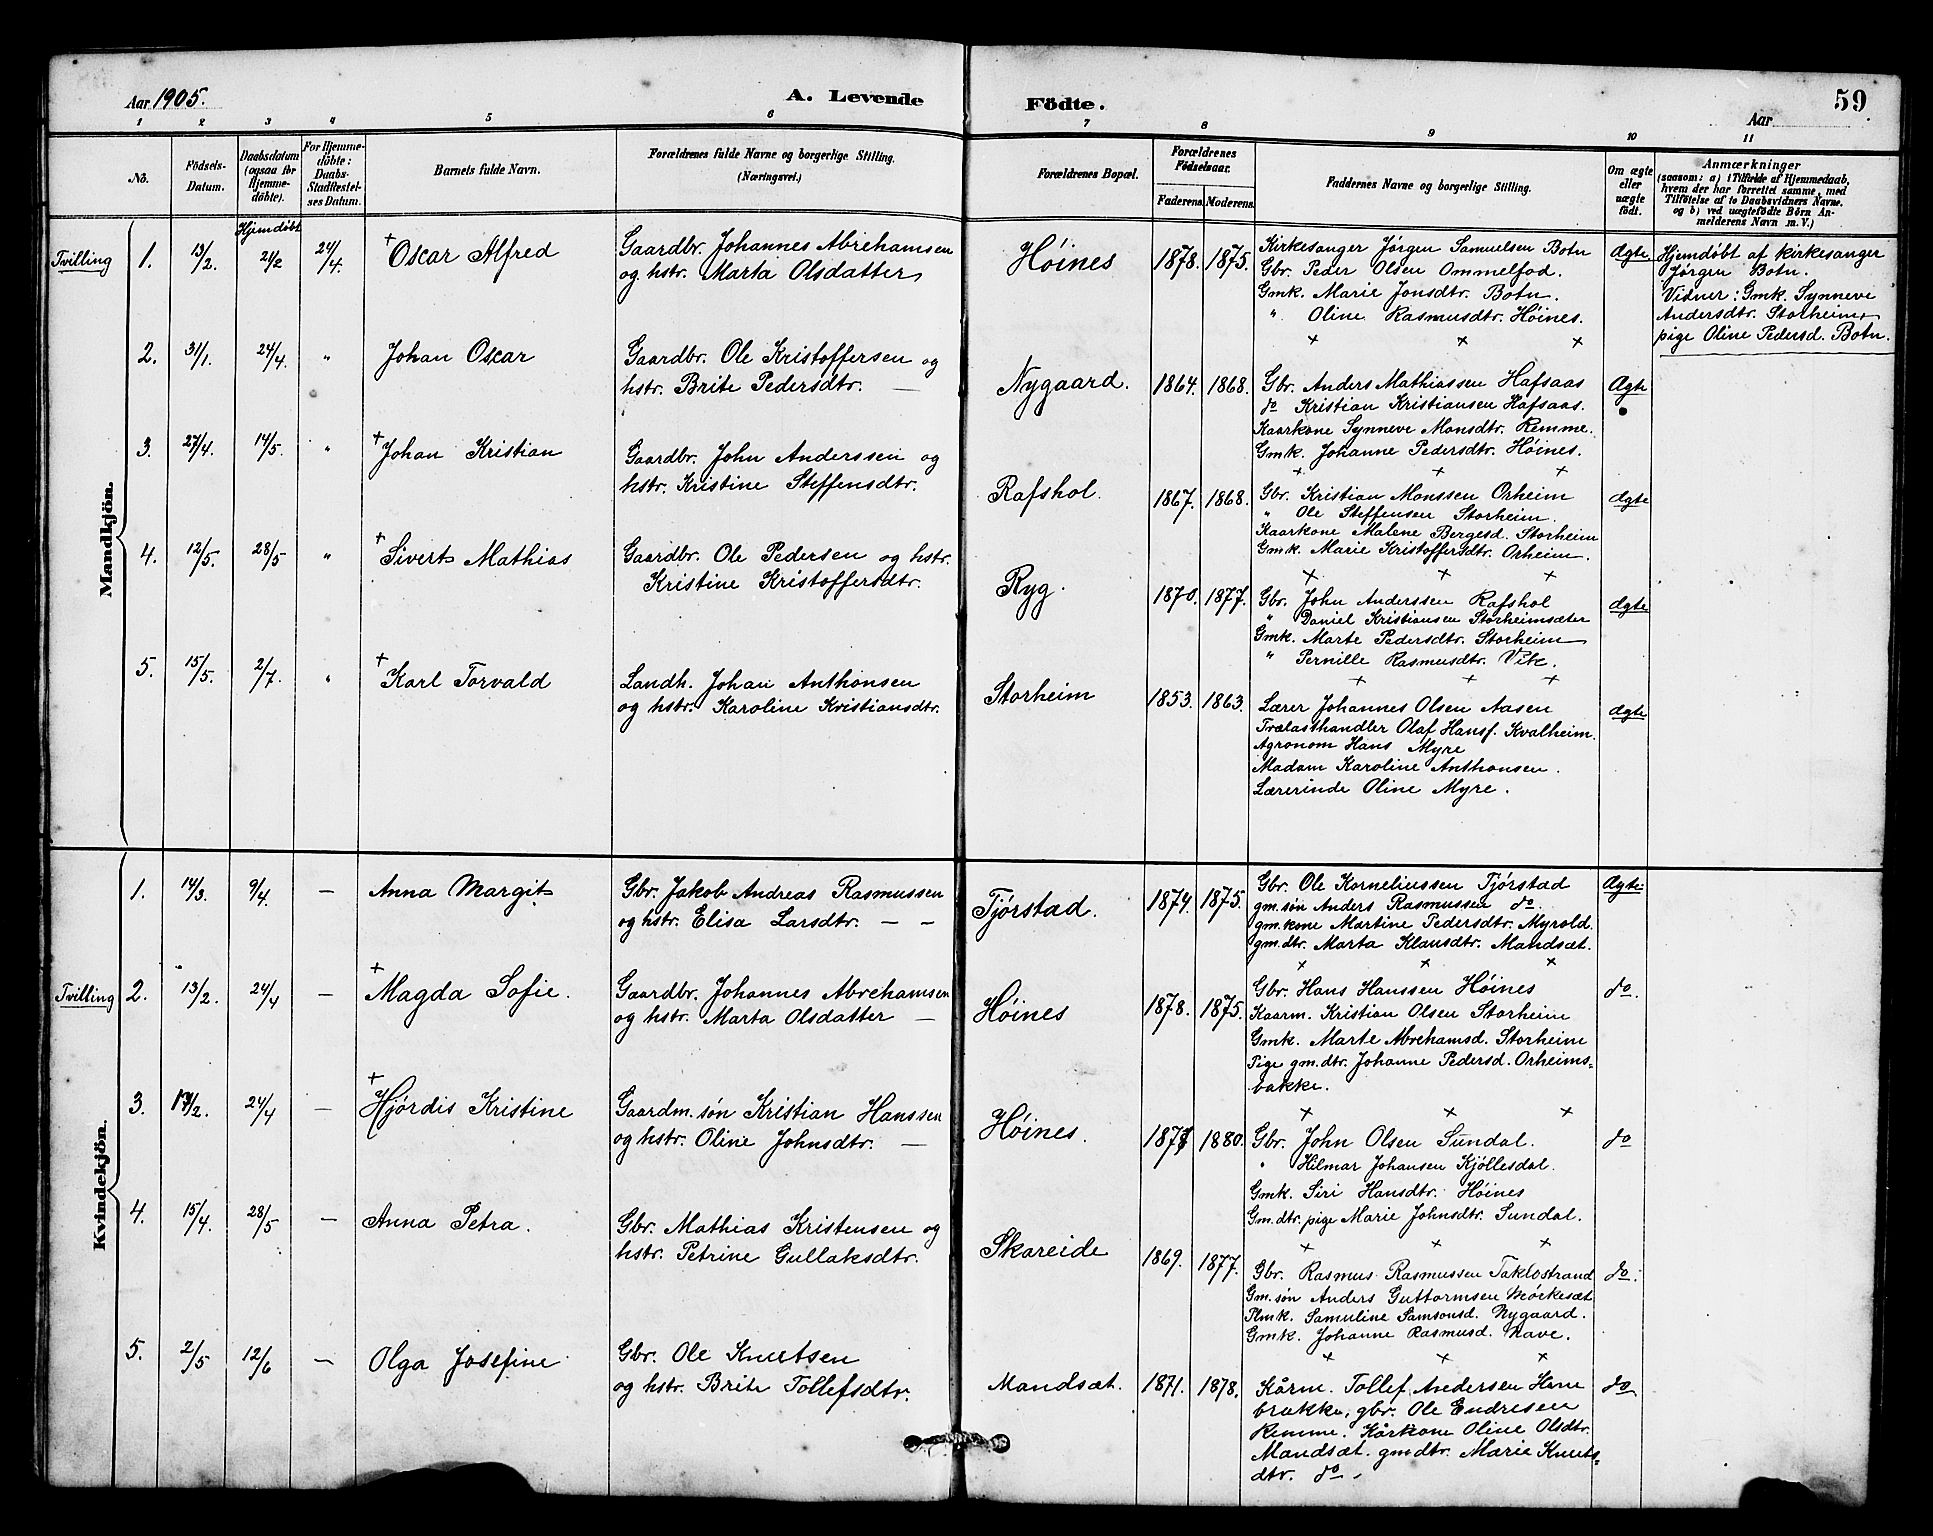 Aar 1905. A. Levende Födte. Aar 59
1 2 3 4 5 6 7 8 9 10 11
No.
Födsels-
Datum.
Daabsdatum
(ogsaa for
Hjemme-
döbte).
For Hjemme-
döbte:
Daabs-
Stadfæstel-
ses Datum.
Barnets fulde Navn.
Forældrenes fulde Navne og borgerlige Stilling.
(Næringsvei.)
Forældrenes Bopæl.
Forældrenes
Födselsaar.
Faderens. Moderens.
Faddernes Navne og borgerlige Stilling.
Om ægte
eller
uægte
födt.
Anmærkninger
(saasom: a) i Tilfælde af Hjemmedaab,
hvem der har forrettet samme, med
Tilföielse af to Daabsvidners Navne.
og b) ved uægtefödte Börn An-
melderens Navn m. V.)
Mandkjön.
Tvilling 1. 13/2. Hjemdøbt 21/2 24/4. † Oscar Alfred
Gaardbr. Johannes Abrehamsen
og hstr. Marta Olsdatter
Høines 1878. 1875.
Kirkesanger Jørgen Samuelsen Botn
Gbr. Peder Olsen Ommelfod.
Gmk. Marie Jonsdtr. Botn.
" Oline Rasmusdtr. Høines.
Ægte
Hjemdøbt af Kirkesanger
Jørgen Botn.
Vidner: Gmk. Synneve
Andersdtr. Storheim,
pige Oline Pedersd. Botn.
× × ×
2. 31/1. 24/4. " Johan Oscar
Gaardbr. Ole Kristoffersen og
hstr. Brite Pedersdtr. —
Nygaard. 1864. 1868.
Gbr. Anders Mathiassen Hafsaas
do Kristian Kristiansen Hafsaas.
Kaarkone Synneve Monsdtr. Remme.
Gmk. Johanne Pedersdtr. Høines.
Ægte
× × ×
3. 27/4. 14/5. " † Johan Kristian
Gaardbr. John Anderssen og
hstr. Kristine Steffensdtr.
Rafshol. 1867. 1868.
Gbr. Kristian Monssen Orheim
" Ole Steffensen Storheim.
Kaarkone Malene Bergesd. Storheim
Gmk. Marie Kristoffersdtr. Orheim.
Ægte
× × ×
4. 12/5. 28/5 " † Sivert Mathias
Gaardbr. Ole Pedersen og hstr.
Kristine Kristoffersdtr.
Ryg. 1870. 1877.
Gbr. John Anderssen Rafshol
" Daniel Kristiansen Storheimsæter
Gmk. Marte Pedersdtr. Storheim
" Pernille Rasmusdtr. Vik.
Ægte
× × ×
5. 15/5. 2/7. " † Karl Torvald
Landh. Johan Anthonsen
og hstr. Karoline Kristiansdtr.
Storheim 1853. 1863.
Lærer Johannes Olsen Aasen
Trælasthandler Olaf Hansf. Kvalheim.
Agronom Hans Myre
Madam Karoline Anthonsen.
Lærerinde Oline Myre.
Ægte
Kvindekjön.
1. 14/3. 9/4. — Anna Margit
Gbr. Jakob Andreas Rasmussen
og hstr. Elisa Larsdtr. — —
Tjørstad. 1874. 1875.
Gbr. Ole Korneliussen Tjørstad
gm.søn Anders Rasmussen do.
gm.kone Martine Pedersdtr. Myrold.
gm.dtr. Marta Klausdtr. Mandsæt.
Ægte.
× × ×
Tvilling 2. 13/2. 24/4 — † Magda Sofie.
Gaardbr. Johannes Abrehamsen
og hstr. Marta Olsdatter —
Høines 1878. 1875.
Gbr. Hans Hanssen Høines
Kaarm. Kristian Olsen Storheim
Gmk. Marte Abrehamsd. Storheim
Pige gm.dtr. Johanne Pedersd. Orheims-
bakke.
do.
× × ×
3. 24/4 — † Hjørdis Kristine
Gaardm.søn Kristian Hanssen
og hstr. Oline Johnsdtr. —
Høines. 1880.
Gbr. John Olsen Sundal.
" Hilmar Johansen Kjöllesdal.
Gmk. Siri Hansdtr. Høines
Gm.dtr. pige Marie Johnsdtr. Sundal.
do
× × ×
4. 15/4. 28/5 — Anna Petra.
Gbr. Mathias Kristensen og
hstr. Petrine Gullaksdtr.
Skareide 1869. 1877.
Gbr. Rasmus Rasmussen Taklostrand
Gm.søn Anders Guttormsen Mörkesæt
Plmk. Samuline Samsonsd. Nygaard.
Gmk. Johanne Rasmusd. Nave.
do.
× × ×
5. 2/5 12/6 — Olga Josefine
Gbr. Ole Knutsen
og hstr. Brite Tollefsdtr.
Mandsæt. 1871. 1878.
Kårm. Tollef Andersen Hene
brække, gbr. Ole Endresen
Remme. Kårkone Oline Olsdtr.
Mandsæt. gmdtr. Marie Knuts-
dtr. do.
do